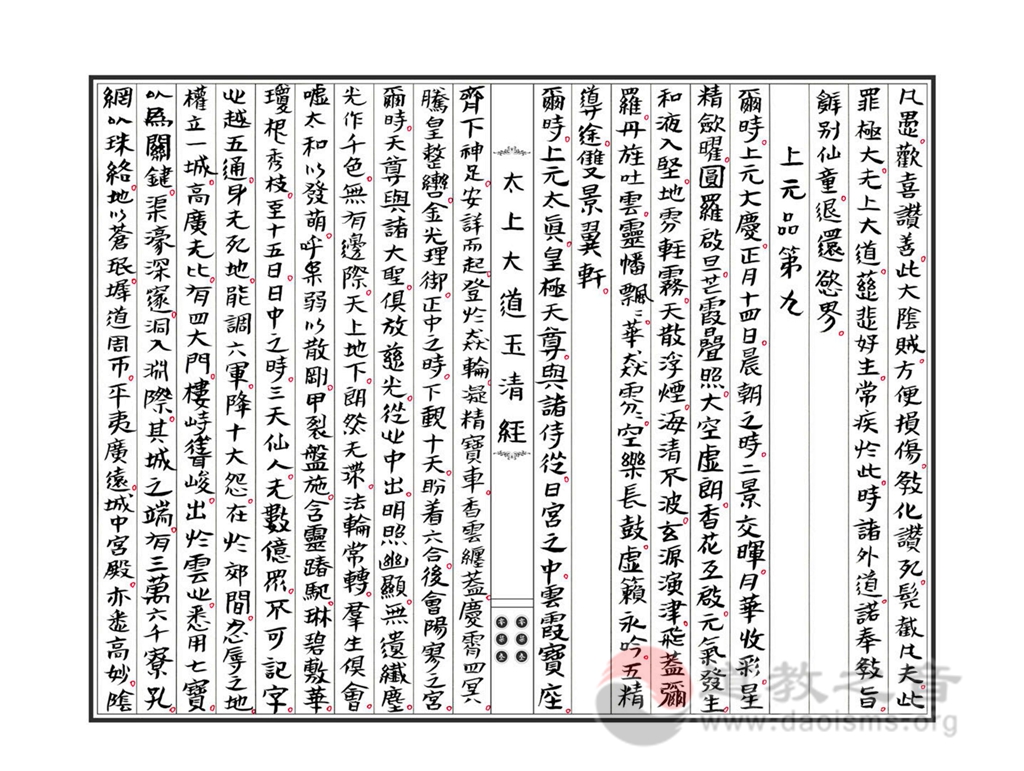 凡愚歡喜讚善此大陰賊方便損傷敎化讚死髡截凡夫此
罪極大无上大道慈悲好生常疾於此時諸外道諾奉敎旨
辭别仙童退還慾界
上元品第九
爾時上元大慶正月十四日晨朝之時二景交暉月華收彩星
精歛曜圓羅啟旦芒霞疊照大空虛朗香花互啟元氣發生
和液入堅地雰輕霧天散浮煙海清不波玄源演津飛蓋彌
羅丹旌吐雲靈幡飄飄華焱雰雰空樂長鼓虛籟永吟五精
導途雙景翼軒
爾時上元太真皇極天尊與諸侍從日宮之中雲霞寶座
太上大道玉清經
齊下神足安詳而起登於焱輪凝精寶車香雲纏蓋慶霄四冥
騰皇整轡金光理御正中之時下觀十天盼着六合後會陽寥之宮
爾時天尊與諸大聖俱放慈光從此中出明照幽顯無遺纖塵
光作千色無有邊際天上地下朗然无滯法輪常轉羣生俱會
噓太和以發萌呼柔弱以散剛甲裂盤施含靈踌馳琳碧敷華
瓊根秀枝至十五日日中之時三天仙人无數億眾不可記字
此越五通身无死地能調六軍降十大怨在於郊間忽辱之地
權立一城高廣无比有四大門樓峙聳峻出於雲此悉用七寶
以爲關鍵渠濠深邃洞入淵際其城之端有三萬六千寮孔
網以珠絡地以蒼珉墀道周帀平夷廣遠城中宮殿亦悉高妙陰
道教之音
www.daoisms.org